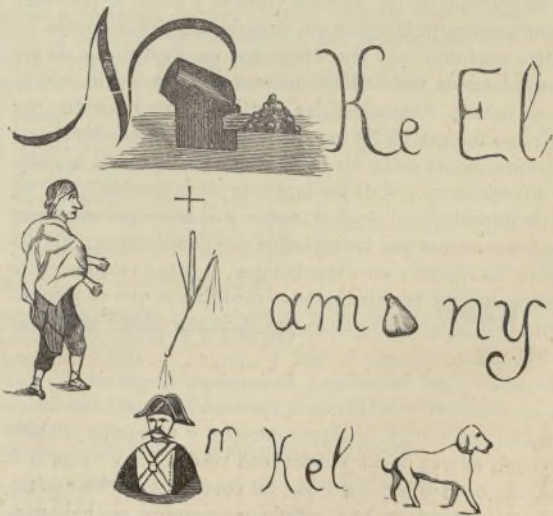 N Ke El
+
am ny
Kel